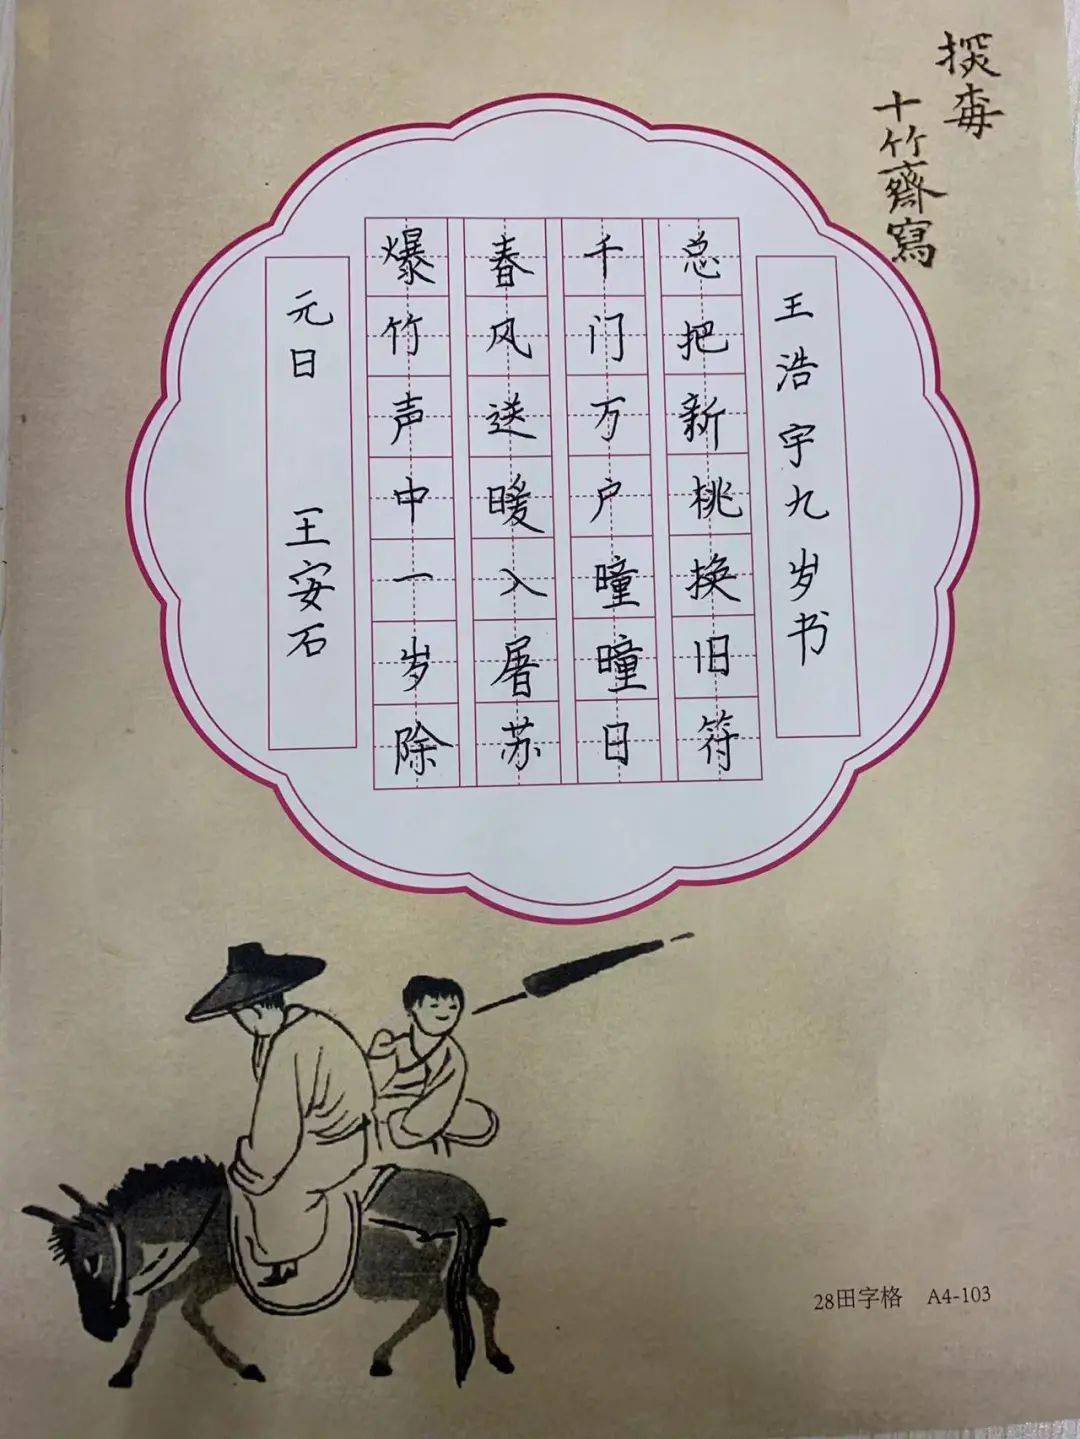 探梅
十竹齋寫
元日 王安石
爆竹声中一岁除
春风送暖入屠苏
千门万户曈曈日
总把新桃换旧符
王浩宇九岁书
28田字格 A4-103